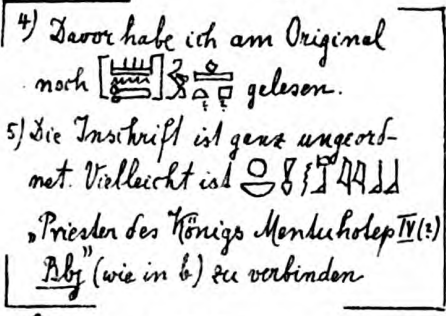 4) Davor habe ich am Original
noch [] gelesen.
5) Die Inschrift ist ganz ungeord-
net. Vielleicht ist
„Priester des Königs Mentuhotep IV(?)
Bbj" (wie in b) zu verbinden